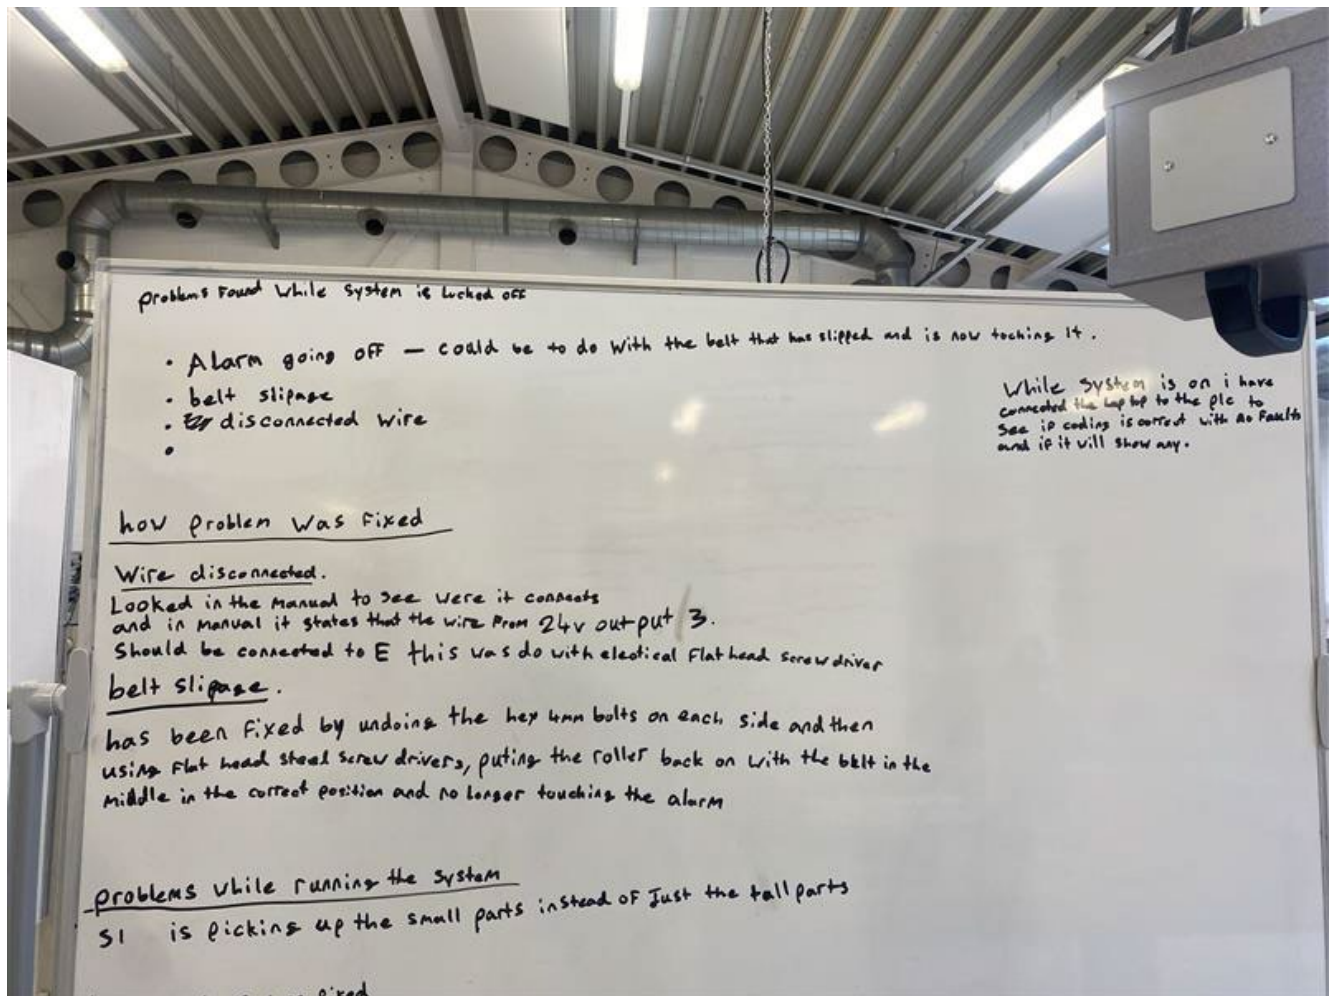 Problems Found While System is Locked off
• Alarm going off – could be to do with the belt that has slipped and is now toching it.
• belt slipage
• disconnected wire
•
While System is on i have
connected the lap top to the plc to
See if coding is correct with no Faults
and if it will show any.
how problem was fixed
Wire disconnected.
Looked in the manual to see were it connects
and in manual it states that the wire From 24v output / 3.
Should be connected to E this was do with electical Flat head screw driver
belt slipage.
has been fixed by undoing the hex 4mm bolts on each side and then
using Flat head steel screw drivers, puting the roller back on with the belt in the
middle in the correct position and no longer touching the alarm
problems while running the system
S1 is picking up the small parts instead of Just the tall parts
fixed